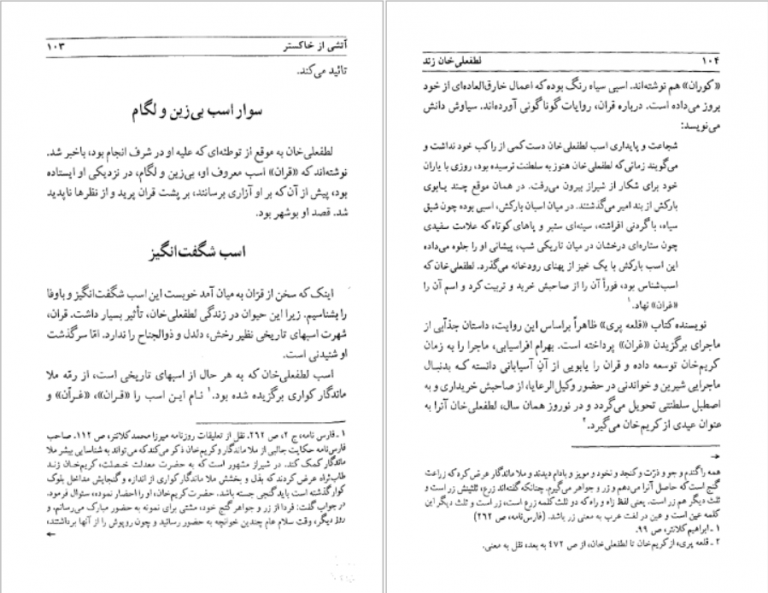 آتشی از خاکستر ۱۰۳
تائید می‌کند.
سوار اسب بی‌زین و لگام
لطفعلی‌خان به موقع از توطئه‌ای که علیه او در شرف انجام بود، باخبر شد.
نوشته‌اند که «قران» اسب معروف او، بی‌زین و لگام، در نزدیکی او ایستاده
بود، پیش از آن‌که بر او آزاری برسانند، بر پشت قران پرید و از نظرها ناپدید
شد. قصد او بوشهر بود.
اسب شگفت‌انگیز
اینک که سخن از قران به میان آمد خوبست این اسب شگفت‌انگیز و باوفا
را بشناسیم. زیرا این حیوان در زندگی لطفعلی‌خان، تأثیر بسیار داشت. قران،
شهرت اسبهای تاریخی نظیر رخش، دلدل و ذوالجناح را ندارد. امّا سرگذشت
او شنیدنی است.
اسب لطفعلی‌خان که به هر حال از اسبهای تاریخی است، از رمّه ملا
ماندگار کواری برگزیده شده بود.۱ نام این اسب را «قران»، «غرّان» و
۱ ـ فارس نامه، ج ۲، ص ۲۶۲. نقل از تعلیقات روزنامه میرزا محمد کلانتر، ص ۱۱۲. صاحب
فارس‌نامه حکایت جالبی از ملا ماندگار و کریم‌خان ذکر می‌کند که می‌تواند به شناسایی بیشتر ملا
ماندگار کمک کند. در شیراز مشهور است که به حضرت معدلت خصلت، کریم‌خان زند
طاب‌ثراه عرض کردند که بذل و بخشش ملا ماندگار کواری از اندازه و گنجایش مداخل بلوک
کوار گذشته است باید گنجی جسته باشد. حضرت کریم‌خان، او را احضار نموده، سئوال فرمود.
در جواب گفت: فردا از زر و جواهر گنج خود، مشتی برای نمونه به حضور مبارک می‌رسانم، و
روز دیگر، وقت سلام عام چندین خوانچه به حضور رسانید و چون روپوش را از آنها برداشتند،
←
۱۰۴ لطفعلی‌خان زند
«کوران» هم نوشته‌اند. اسبی سیاه رنگ بوده که اعمال خارق‌العاده‌ای از خود
بروز می‌داده است. درباره قران، روایات گوناگونی آورده‌اند. سیاوش دانش
می‌نویسد:
شجاعت و پایداری اسب لطفعلی‌خان دست کمی از راکب خود نداشت و
می‌گویند زمانی‌که لطفعلی‌خان هنوز به سلطنت نرسیده بود، روزی با یاران
خود برای شکار از شیراز بیرون می‌رفت. در همان موقع چند یابوی
بارکش از بند امیر می‌گذشتند. در میان اسبان بارکش، اسبی بوده چون شبق
سیاه، با گردنی افراشته، سینه‌ای ستبر و پاهای کوتاه که علامت سفیدی
چون ستاره‌ای درخشان در میان تاریکی شب، پیشانی او را جلوه می‌داده
این اسب بارکش با یک خیز از پهنای رودخانه می‌گذرد. لطفعلی‌خان که
اسب‌شناس بود، فوراً آن را از صاحبش خرید و تربیت کرد و اسم آن را
«غران» نهاد.۱
نویسنده کتاب «قلعه پری» ظاهراً براساس این روایت، داستان جذّابی از
ماجرای برگزیدن «غران» پرداخته است. بهرام افراسیابی، ماجرا را به زمان
کریم‌خان توسعه داده و قران را یابویی از آنِ آسیابانی دانسته که بدنبال
ماجرایی شیرین و خواندنی در حضور وکیل‌الرعایا، از صاحبش خریداری و به
اصطبل سلطنتی تحویل می‌گردد و در نوروز همان سال، لطفعلی‌خان آنرا به
عنوان عیدی از کریم‌خان می‌گیرد.۲
→
همه را گندم و جو و ذرّت و کنجد و نخود و مویز و بادام دیدند و ملا ماندگار عرض کرد که زراعت
گنج است که حاصل آنرا می‌دهم و زر و جواهر می‌گیرم. چنانکه گفته‌اند زرع، ثلثینش زر است و
ثلث دیگر هم زر است. یعنی لفظ زاء و راء که دو ثلث کلمه زرع است، زر است و ثلث دیگر این
کلمه عین است و عین در لغت عرب به معنی زر باشد. (فارس‌نامه، ص ۲۶۲)
۱ ـ ابراهیم کلانتر، ص ۹۹.
۲ ـ قلعه پری، از کریم‌خان تا لطفعلی‌خان، از ص ۴۷۲ به بعد، نقل به معنی.